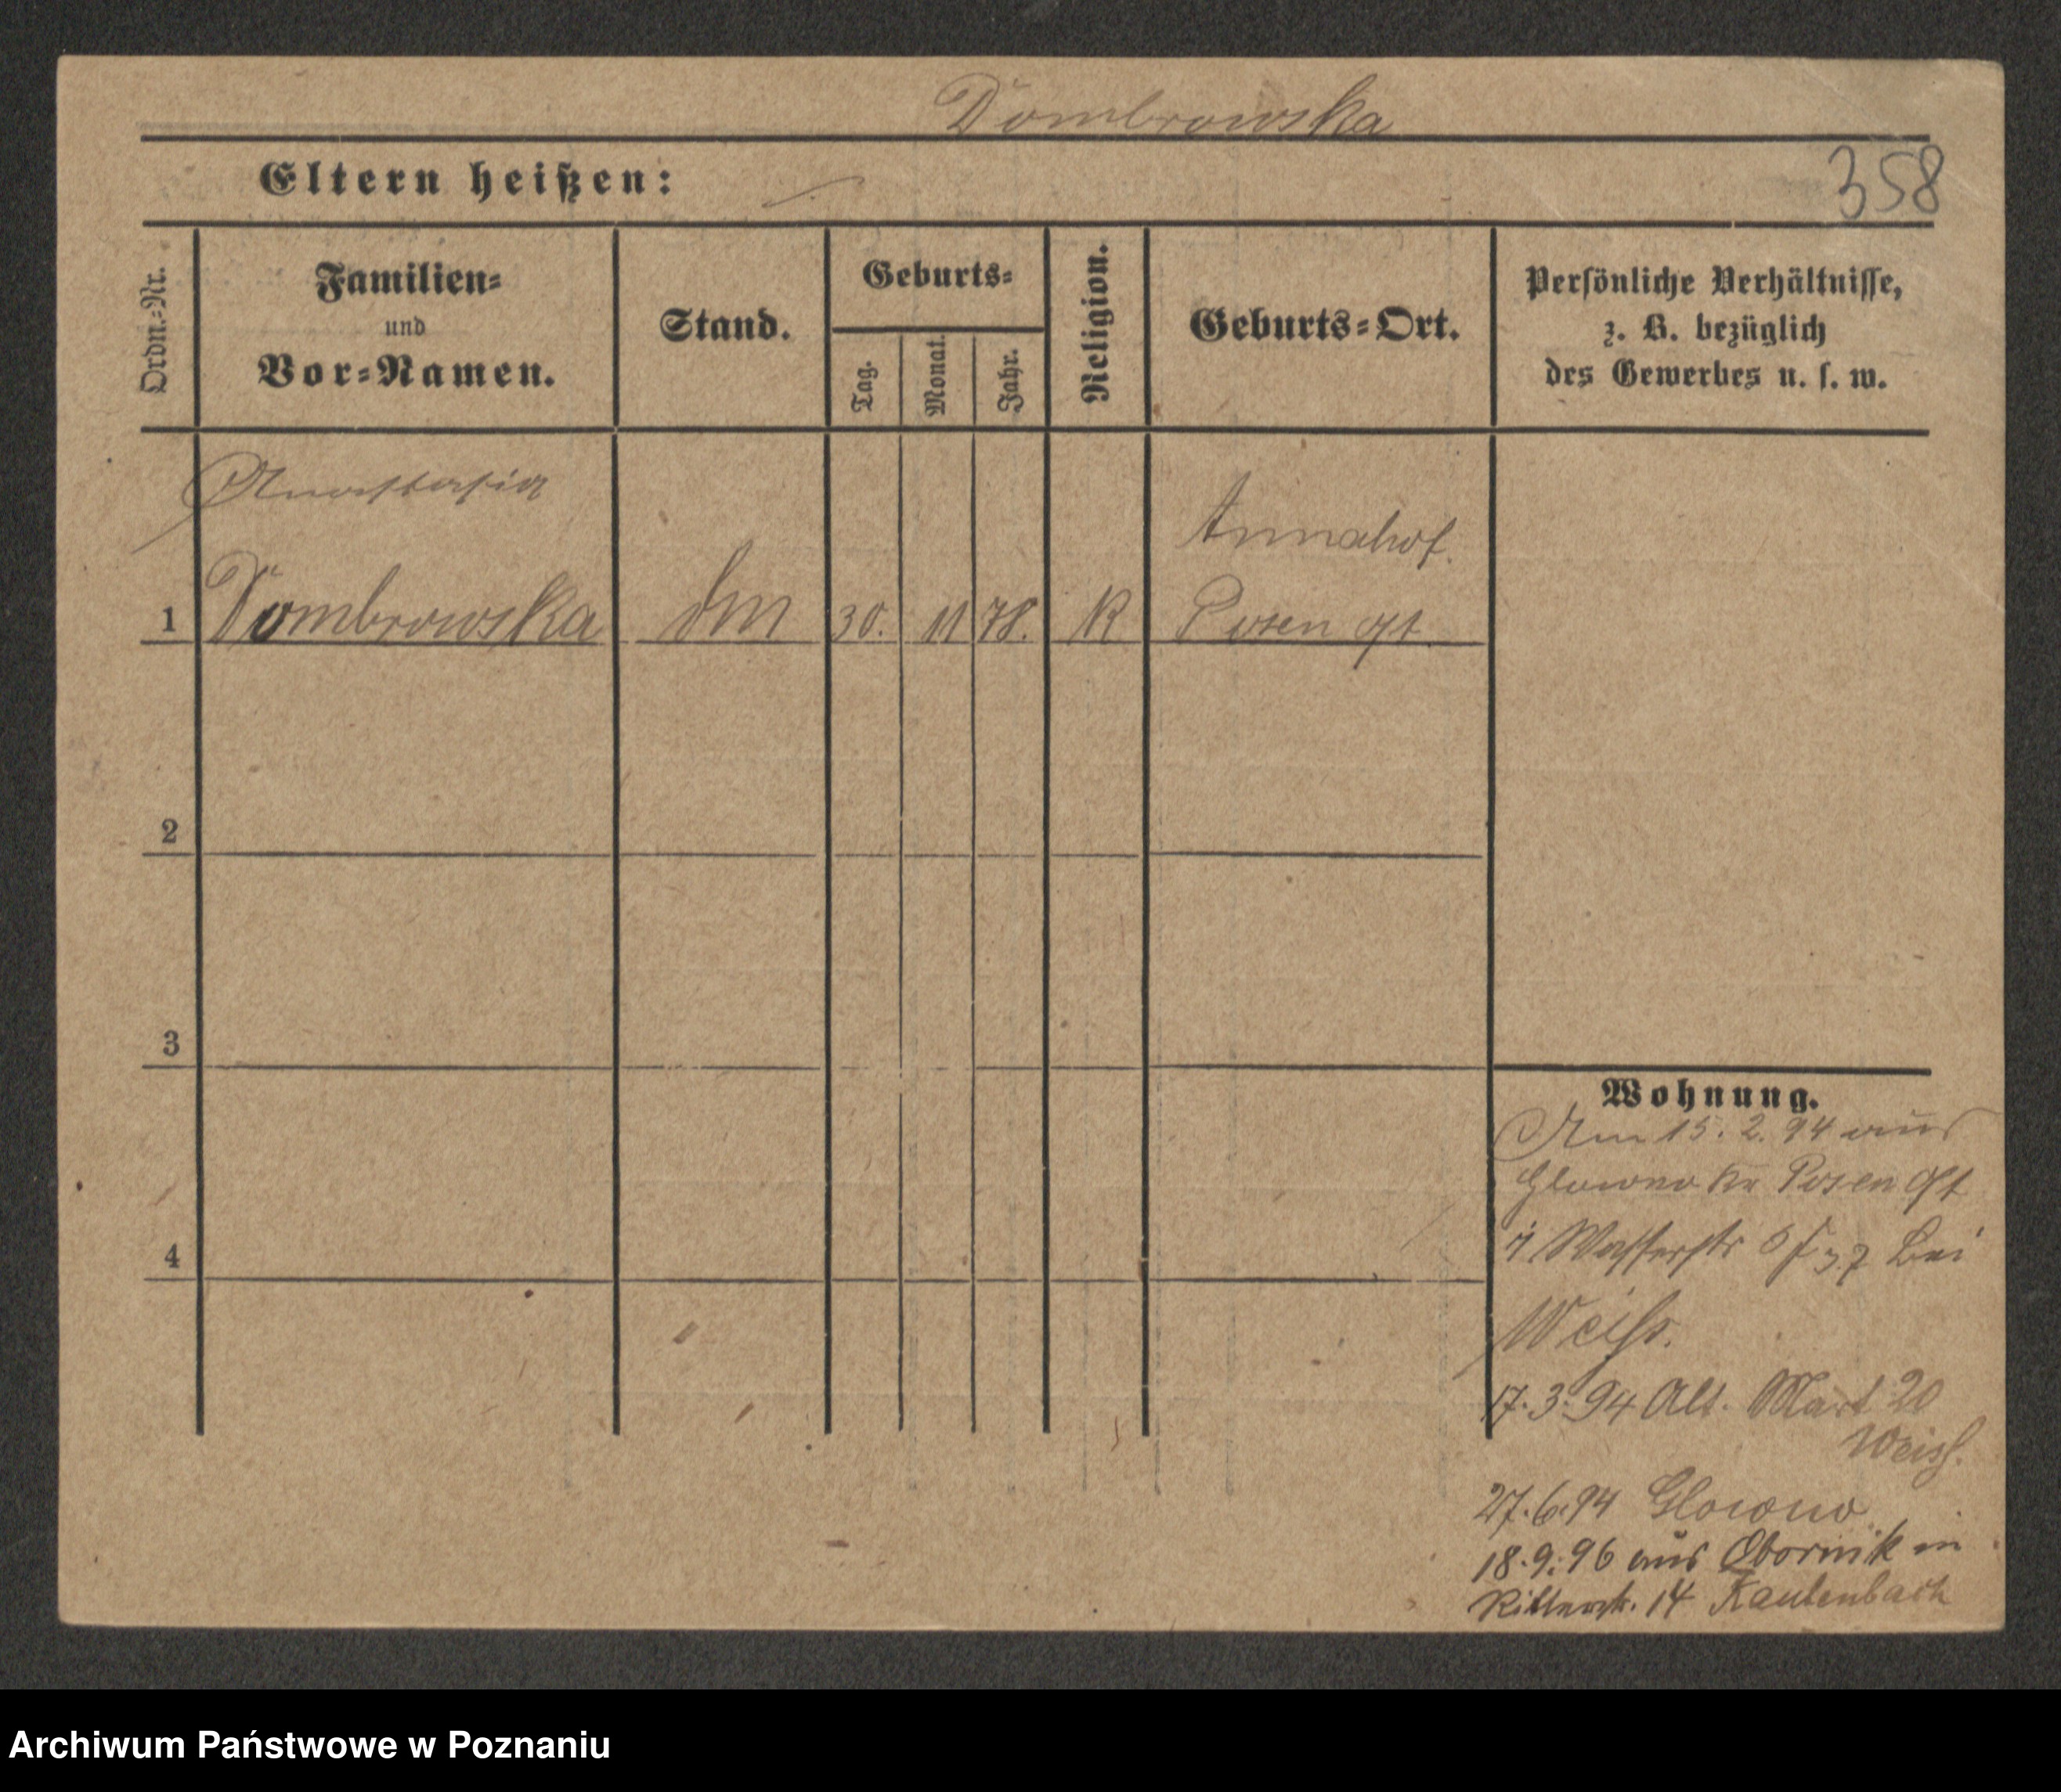 Dombrowska
Eltern heißen:
358
Ordn.-Nr.
Familien-
und
Vor-Namen.
Stand.
Geburts-
Tag.
Monat.
Jahr.
Religion.
Geburts-Ort.
Persönliche Verhältnisse,
z. B. bezüglich
des Gewerbes u. s. w.
Anastasia
Annahof
1 Dombrowska 30. 11 78. K Posen Ost
2
3
4
Wohnung.
Am 15. 2. 94 aus
Glowno Kr Posen Ost
Wasserstr bei
Weiss.
17. 3. 94 Alt. Mart 20
Weiss.
27. 6. 94 Glowno
18. 9. 96 aus Obornik in
Ritterstr. 14 Kautenbach
Archiwum Państwowe w Poznaniu